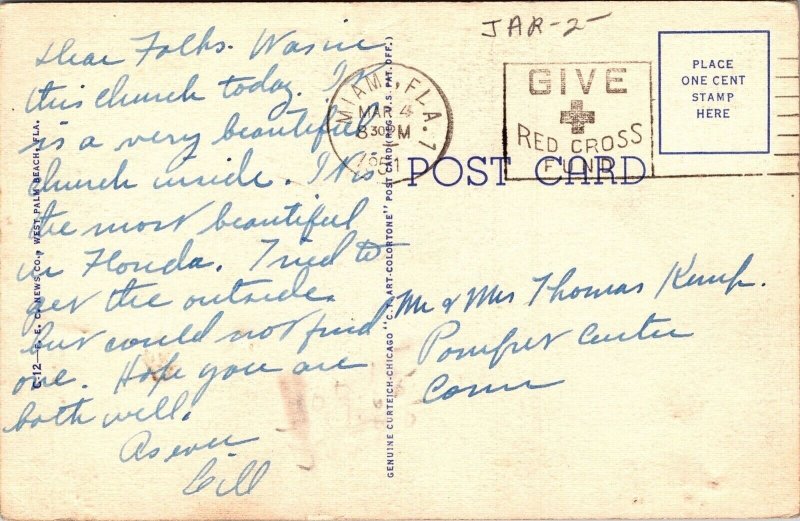 Dear Folks. Was in
this church today. It
is a very beautiful
church inside. It is
the most beautiful
in Florida. Tried to
get the outside
but could not find
one. Hope you are
both well.
As ever
Bill
C-12—F. E. C. NEWS CO., WEST PALM BEACH, FLA.
GENUINE CURTEICH-CHICAGO "C. T. ART-COLORTONE" POST CARD (REG. U. S. PAT. OFF.)
JAR-2-
MIAMI, FLA. 7
MAR 4
8 30 PM
1951
GIVE
RED CROSS
FUND
PLACE
ONE CENT
STAMP
HERE
POST CARD
Mr & Mrs Thomas Kemp.
Pomfret Center
Conn